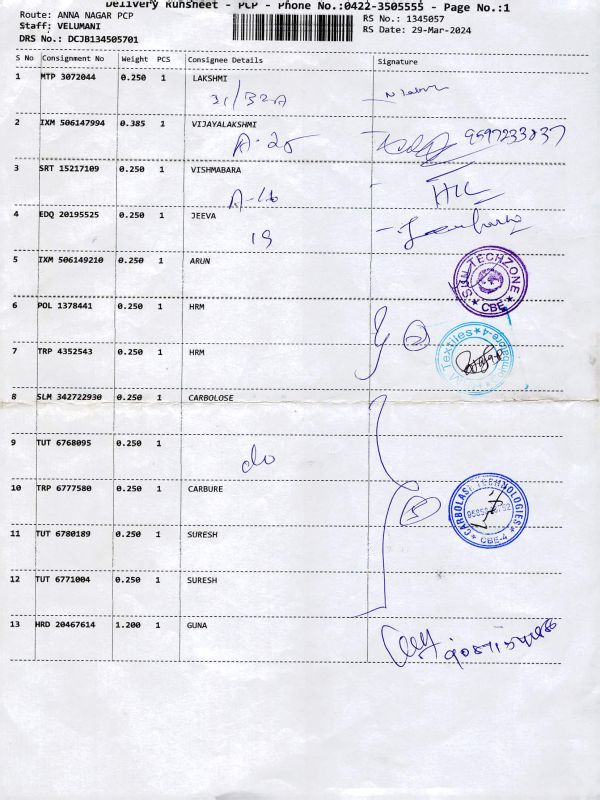 Delivery Runsheet - PCP - Phone No.:0422-3505555 - Page No.:1
Route: ANNA NAGAR PCP
RS No.: 1345057
Staff: VELUMANI
RS Date: 29-Mar-2024
DRS No.: DCJB134505701
S No Consignment No Weight PCS Consignee Details Signature
1 MTP 3072044 0.250 1 LAKSHMI
31/B2A
2 IXM 506147994 0.385 1 VIJAYALAKSHMI
A-25 9597233837
3 SRT 15217109 0.250 1 VISHMABARA
A-16
4 EDQ 20195525 0.250 1 JEEVA
19
5 IXM 506149210 0.250 1 ARUN
SUN TECHZONE
CBE
6 POL 1378441 0.250 1 HRM
2
7 TRP 4352543 0.250 1 HRM
Textiles
8 SLM 342722930 0.250 1 CARBOLOSE
9 TUT 6768095 0.250 1
do
10 TRP 6777580 0.250 1 CARBURE
5
CARBOLASE TECHNOLOGIES
CBE-4
11 TUT 6780189 0.250 1 SURESH
12 TUT 6771004 0.250 1 SURESH
13 HRD 20467614 1.200 1 GUNA